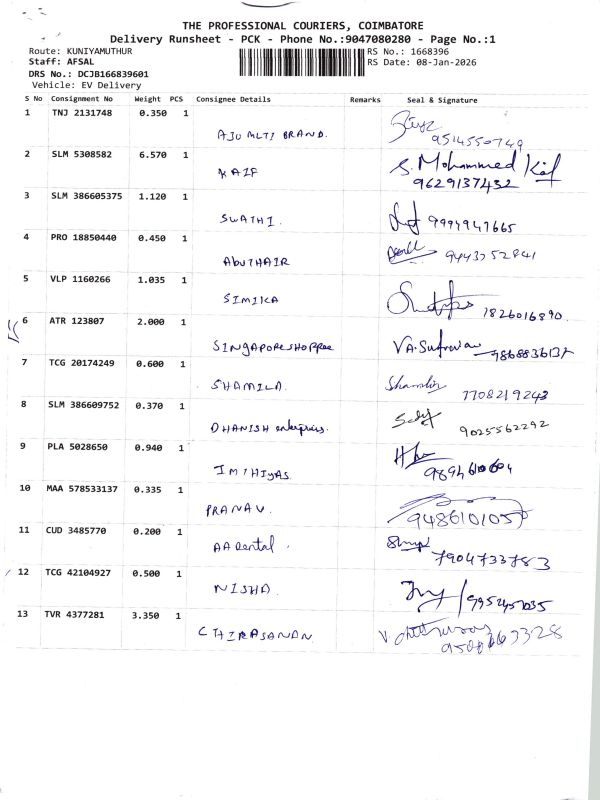 THE PROFESSIONAL COURIERS, COIMBATORE
Delivery Runsheet - PCK - Phone No.:9047080280 - Page No.:1
Route: KUNIYAMUTHUR
RS No.: 1668396
Staff: AFSAL
RS Date: 08-Jan-2026
DRS No.: DCJB166839601
Vehicle: EV Delivery
S No Consignment No Weight PCS Consignee Details Remarks Seal & Signature
1 TNJ 2131748 0.350 1
AJU MLTI BRAND. 9514550749
2 SLM 5308582 6.570 1
KAIF S. Mohammed Kaif
9629137432
3 SLM 386605375 1.120 1
SWATHI. 9994947665
4 PRO 18850440 0.450 1
ABUTHAIR 9443752841
5 VLP 1160266 1.035 1
SIMIKA 7826016890.
6 ATR 123807 2.000 1
SINGAPORESHOPPEE 9868836137
7 TCG 20174249 0.600 1
SHAMILA. 7708219243
8 SLM 386609752 0.370 1
DHANISH enterprises. 9025562292
9 PLA 5028650 0.940 1
IMTHIYAS. 9894610604
10 MAA 578533137 0.335 1
PRANAV. 9486101057
11 CUD 3485770 0.200 1
AA dental. 7904733783
12 TCG 42104927 0.500 1
NISHA.
13 TVR 4377281 3.350 1
CTHIRASANAN